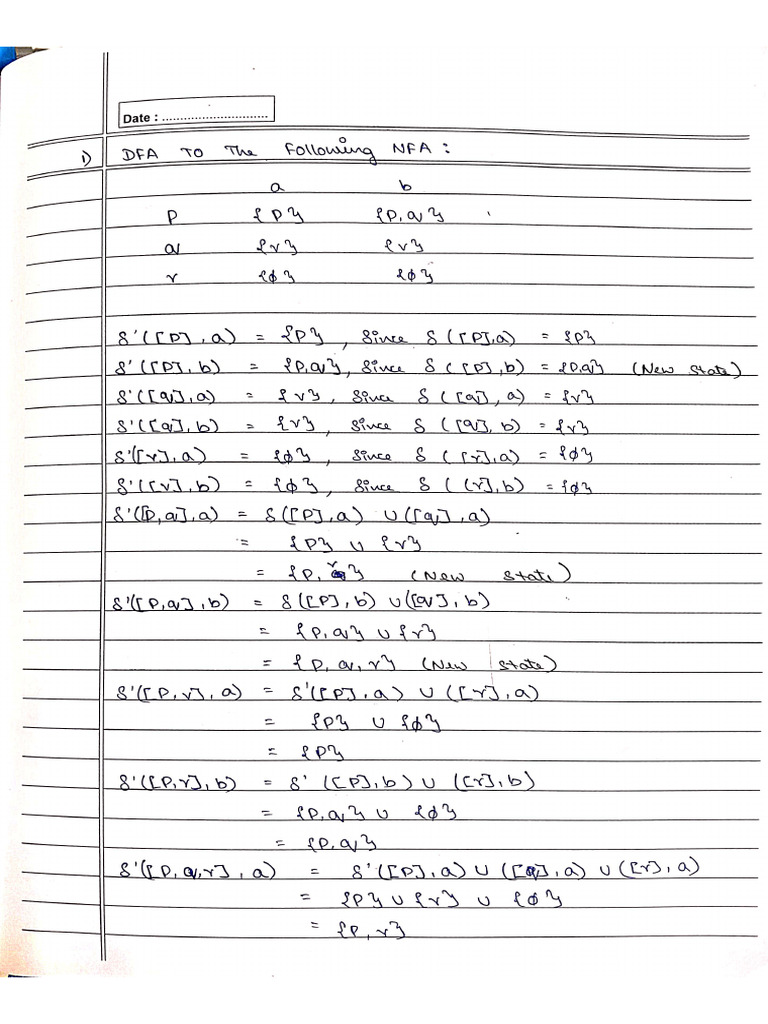 Date : ..............................
1) DFA TO The Following NFA :
a b
P {P} {P,q}
q {r} {r}
r {φ} {φ}
δ'([P],a) = {P}, Since δ([P],a) = {P}
δ'([P],b) = {P,q}, Since δ([P],b) = {P,q} (New State)
δ'([q],a) = {r}, Since δ([q],a) = {r}
δ'([q],b) = {r}, Since δ([q],b) = {r}
δ'([r],a) = {φ}, Since δ([r],a) = {φ}
δ'([r],b) = {φ}, Since δ([r],b) = {φ}
δ'([P,q],a) = δ([P],a) ∪ ([q],a)
= {P} ∪ {r}
= {P,r} (New State)
δ'([P,q],b) = δ([P],b) ∪ ([q],b)
= {P,q} ∪ {r}
= {P,q,r} (New State)
δ'([P,r],a) = δ'([P],a) ∪ ([r],a)
= {P} ∪ {φ}
= {P}
δ'([P,r],b) = δ'([P],b) ∪ ([r],b)
= {P,q} ∪ {φ}
= {P,q}
δ'([P,q,r],a) = δ'([P],a) ∪ ([q],a) ∪ ([r],a)
= {P} ∪ {r} ∪ {φ}
= {P,r}